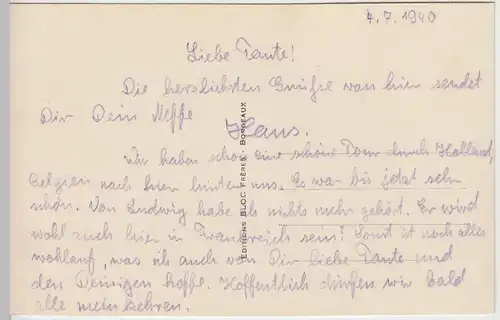 4.7.1940
Liebe Tante!
Die herzlichsten Grüße von hier sendet
Dir Dein Neffe
Hans.
Wir haben schon eine schöne Tour durch Holland
Belgien nach hier hinter uns. Es war bis jetzt sehr
schön. Von Ludwig habe ich nichts mehr gehört. Er wird
wohl auch hier in Frankreich sein? Sonst ist noch alles
wohlauf, was ich auch von Dir liebe Tante und
den Deinigen hoffe. Hoffentlich dürfen wir bald
alle heimkehren.
EDITIONS BLOC FRÈRES - BORDEAUX